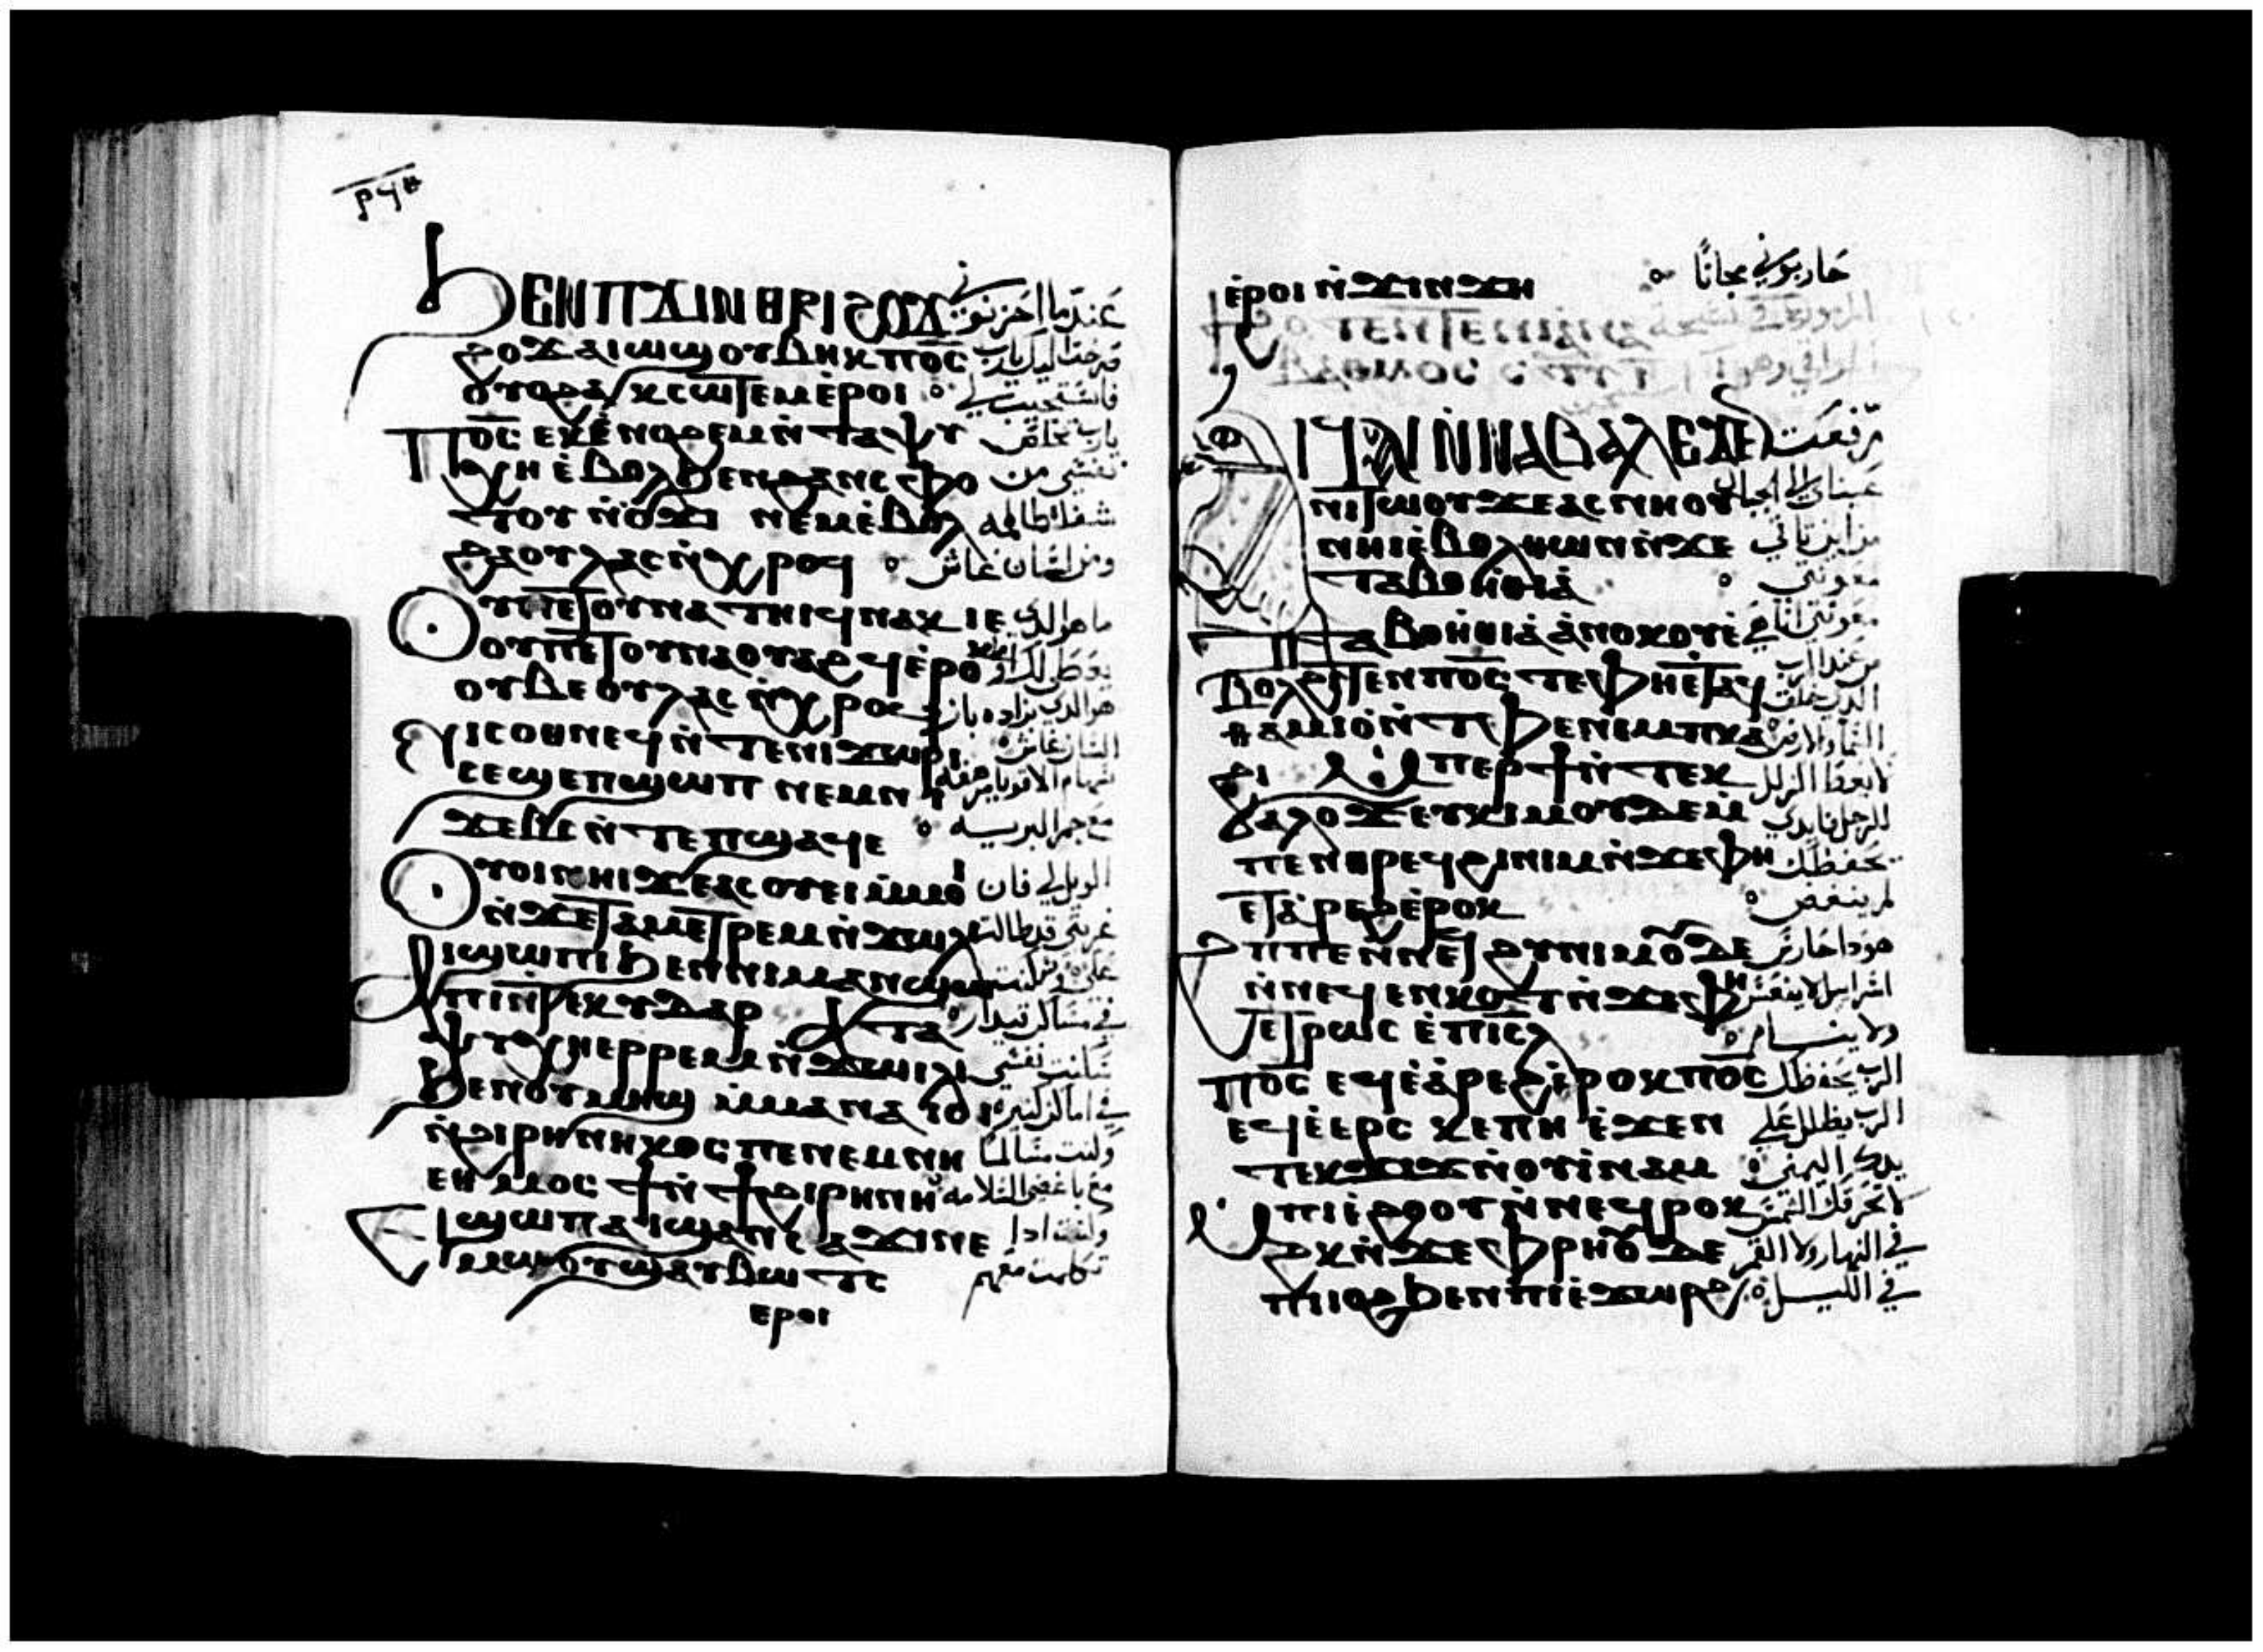 ⲣϥⲏ
ϦⲈⲚⲠϪⲒⲚⲐⲢⲒϨⲞϪ عندما احزنوني
ϩⲉϫ ⲁⲓⲱϣ ⲟⲩⲃⲏⲕ ⲡⲟ̅ⲥ̅ صرخت اليك يارب
ⲟⲩⲟϩ ⲁⲕⲥⲱⲧⲉⲙ ⲉ̀ⲣⲟⲓ فاستجيب لي
ⲡⲟ̅ⲥ̅ ⲉⲕⲉ̀ⲛⲟϩⲉⲙ ⲛ̀ⲧⲁⲯⲩ يارب تخلص
ⲭⲏ ⲉ̀ⲃⲟⲗ ϧⲉⲛ ϩⲁⲛⲥⲫⲟ نفسي من
ⲧⲟⲩ ⲛ̀ϭⲟϫⲓ ⲛⲉⲙ ⲉ̀ⲃⲟⲗ شفاه ظالمه
ϩⲁ ⲟⲩⲗⲁⲥ ⲛ̀ⲭⲣⲟϥ ومن لسان غاش
ⲟⲩ ⲡⲉⲧⲟⲩⲛⲁⲧⲏⲓϥ ⲛⲁⲕ ⲓⲉ ما هو الذي
ⲟⲩ ⲡⲉⲧⲟⲩⲛⲁⲟⲩⲁϩϥ ⲉ̀ⲣⲟⲕ يعطي لك او
ⲟⲩⲃⲉ ⲟⲩⲗⲁⲥ ⲛ̀ⲭⲣⲟϥ هو الذي تزاده بازا
ⲛⲓⲥⲟⲑⲛⲉϥ ⲛ̀ⲧⲉ ⲛⲓϫⲱⲣⲓ اللسان غاش
ⲥⲉϣⲉⲡϣⲱⲡ ⲛⲉⲙ ⲛⲓ سهام الاقويا مرهفه
ϫⲉⲃⲥ ⲛ̀ⲧⲉ ⲡϣⲁϥⲉ مع جمر البريه
ⲟⲩⲟⲓ ⲛⲏⲓ ϫⲉ ⲁⲥⲟⲩⲉⲓ ⲙ̀ⲙⲟ الويل لي فان
ⲛ̀ϫⲉ ⲧⲁⲙⲉⲧⲣⲉⲙⲛ̀ϫⲱⲓⲗⲓ غربتي قد طالت
ⲁⲓϣⲱⲡⲓ ϧⲉⲛ ⲛⲓⲙⲁⲛϣⲱ علي وسكنت
ⲡⲓ ⲛ̀ⲧⲉ ⲕⲩⲇⲁⲣ ⲁⲧⲁ في مساكن قيدار
ⲯⲩⲭⲏ ⲉⲣⲣⲉⲙⲛ̀ϫⲱⲓⲗⲓ سكنت نفسي
ϧⲉⲛ ⲟⲩⲙⲏϣ ⲙ̀ⲙⲁ ⲛⲁⲓⲟⲓ في اماكن كثيره
ⲛ̀ϩⲓⲣⲏⲛⲏⲕⲟⲥ ⲡⲉ ⲛⲉⲙ ⲛⲏ وكنت مسالما
ⲉⲑⲙⲟⲥϯ ⲛ̀ϯϩⲓⲣⲏⲛⲏ مع باغضي السلامه
ⲉϣⲱⲡ ⲁⲓϣⲁⲛⲥⲁϫⲓ ⲛⲉ وكنت ادا
ⲙⲱⲟⲩ ϣⲁⲩⲃⲱⲧⲥ تكلمت معهم
ⲉⲣⲟⲓ
ⲉ̀ⲣⲟⲓ ⲛ̀ϫⲓⲛϫⲏ حاربوني مجانًا
ⲀⲒϤⲀⲒ ⲚⲚⲀⲂⲀⲖ ⲈϪⲈⲚ رفعت
ⲛⲓⲧⲱⲟⲩ ϫⲉ ⲁⲥⲛⲏⲟⲩ عيناي الي الجبال
ⲛⲏⲓ ⲉ̀ⲃⲟⲗ ⲑⲱⲛ ⲛ̀ϫⲉ من اين تاتي
ⲧⲁⲃⲟⲏⲑⲓⲁ̀ معونتي
ⲧⲁⲃⲟⲏⲑⲓⲁ̀ ⲁ̀ⲛⲟⲕ ⲟⲩⲉ̀ معونتي انا هي
ⲃⲟⲗϩⲓⲧⲉⲛ ⲡⲟ̅ⲥ̅ ⲧⲉ ⲫⲏⲉ̀ⲧⲁϥ من عند الرب
ⲑⲁⲙⲓⲟ̀ ⲛ̀ⲧⲫⲉ ⲛⲉⲙ ⲡⲕⲁ الذي خلق
ϩⲓ ⲙ̀ⲡⲉⲣϯ ⲛ̀ⲧⲉⲕ السما والارض
ϭⲁⲗⲟϫ ⲉⲩⲕⲓⲙ ⲟⲩⲇⲉ ⲙ̀ لا يعط الزلل
ⲡⲉⲛⲑⲣⲉϥϩⲓⲛⲓⲙ ⲛ̀ϫⲉ ⲫⲏ للرجل يحفظك
ⲉⲧⲁ̀ⲣⲉϩ ⲉ̀ⲣⲟⲕ لم ينعس
ϩⲏⲡⲡⲉ ⲛ̀ⲛⲉϥϩⲩⲛⲓⲙ ⲟⲩⲇⲉ هودا حارس
ⲛ̀ⲛⲉϥⲉⲛⲕⲟⲧ ⲛ̀ϫⲉ ⲫⲏ اسراييل لا ينعس
ⲉⲧⲣⲱⲓⲥ ⲉ̀ⲡⲓⲥ̅ⲗ̅ ولا ينام
ⲡⲟ̅ⲥ̅ ⲉϥⲉ̀ⲁ̀ⲣⲉϩ ⲉ̀ⲣⲟⲕ ⲡⲟ̅ⲥ̅ الرب يحفظك
ⲉϥⲉ̀ⲉⲣⲥⲕⲉⲡⲏ ⲉ̀ϫⲉⲛ الرب يظلل علي
ⲧⲉⲕϫⲓϫ ⲛ̀ⲟⲩⲓ̀ⲛⲁⲙ يدك اليمني
ⲙ̀ⲡⲓⲉ̀ϩⲟⲟⲩ ⲛ̀ⲛⲉϥⲣⲟⲕ لا تحرقك الشمس
ϩⲕ ⲛ̀ϫⲉ ⲫⲣⲏ ⲟⲩⲇⲉ في النهار ولا القمر
ⲡⲓⲓⲟϩ ϧⲉⲛ ⲡⲓⲉ̀ϫⲱⲣϩ في الليل